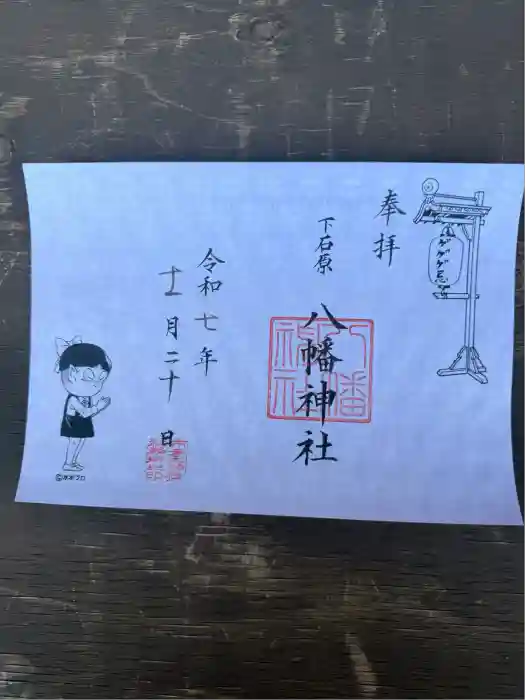 奉拝
ゲゲゲ忌
下石原
八幡神社
八幡神社
令和七年
十一月二十日
©水木プロ